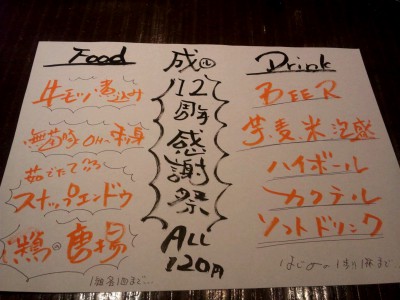 Food
牛モツ煮込み
無菌豚 OH! 刺身
茹でたて!!!
スナップエンドウ
鶏の唐揚
1組各1回まで…
成ル
12
周年
感謝祭
ALL
120円
Drink
BEER
芋、麦、米、泡盛
ハイボール
カクテル
ソフトドリンク
はじめの1時間まで…